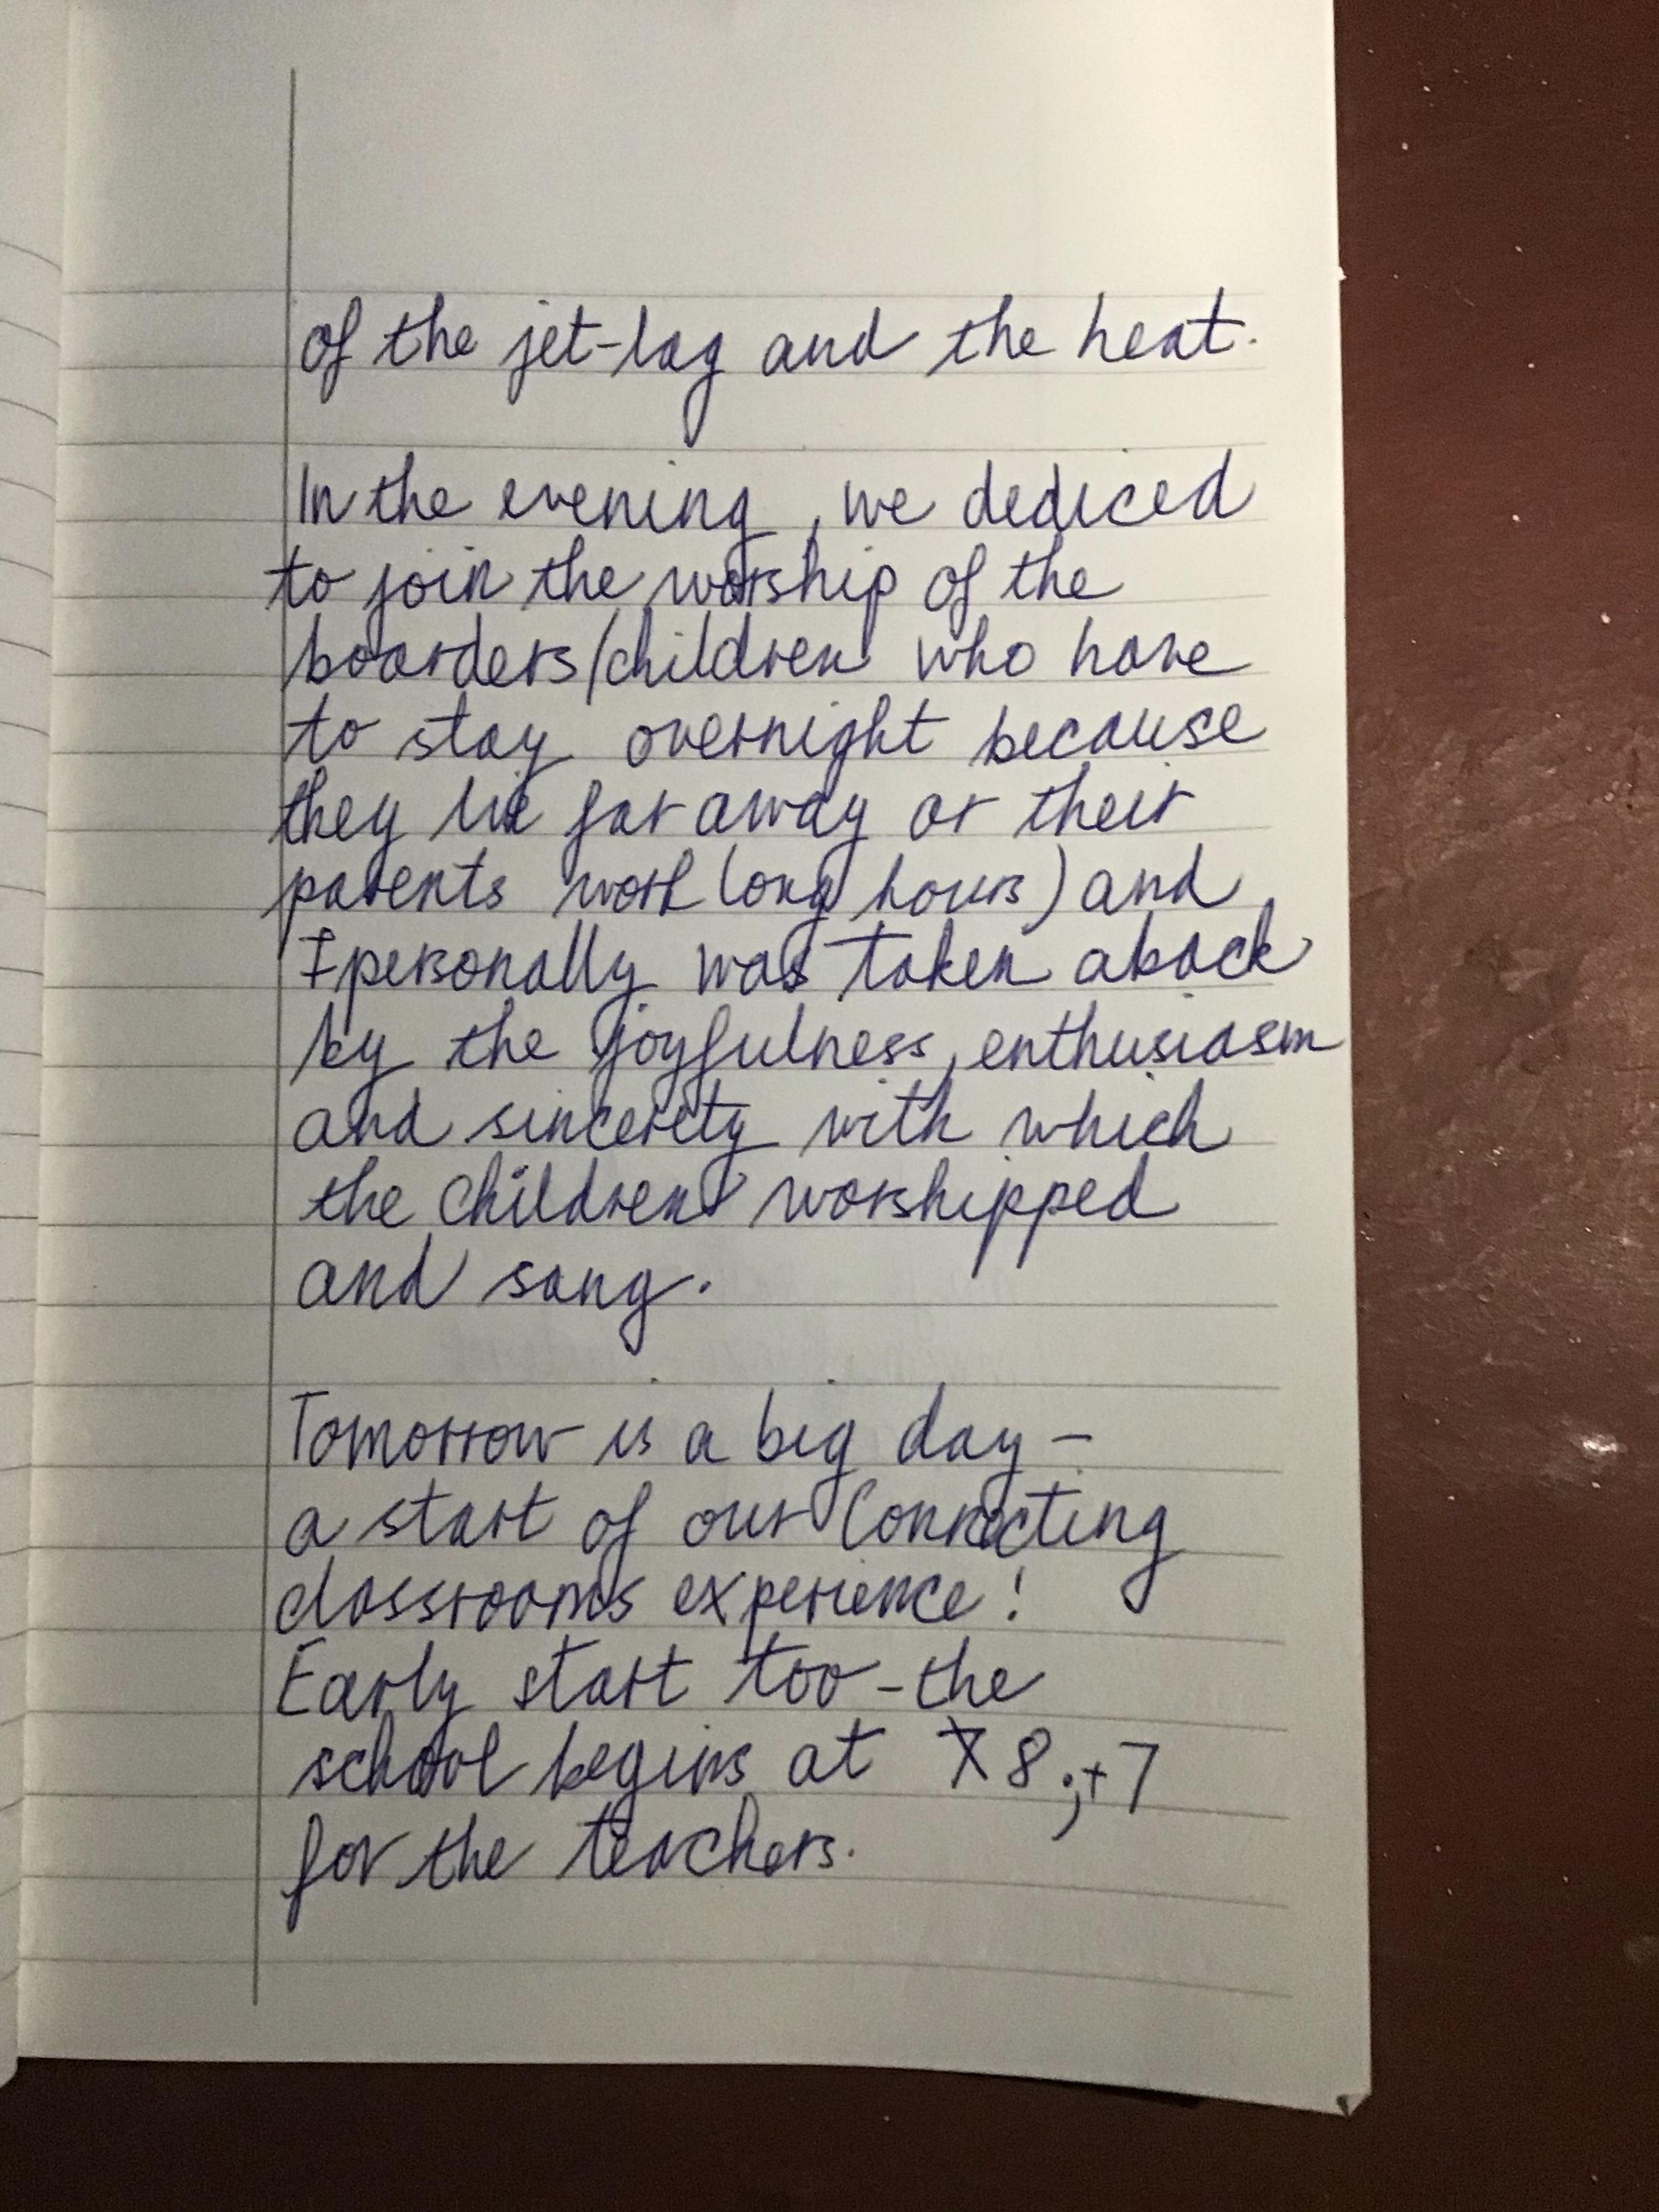 of the jet-lag and the heat.
In the evening, we dediced
to join the worship of the
boarders/children who have
to stay overnight because
they live far away or their
parents work long hours) and
I personally was taken aback
by the joyfulness, enthusiasm
and sincerety with which
the children worshipped
and sang.
Tomorrow is a big day -
a start of our Connecting
classrooms experience!
Early start too - the
school begins at 8; + 7
for the teachers.